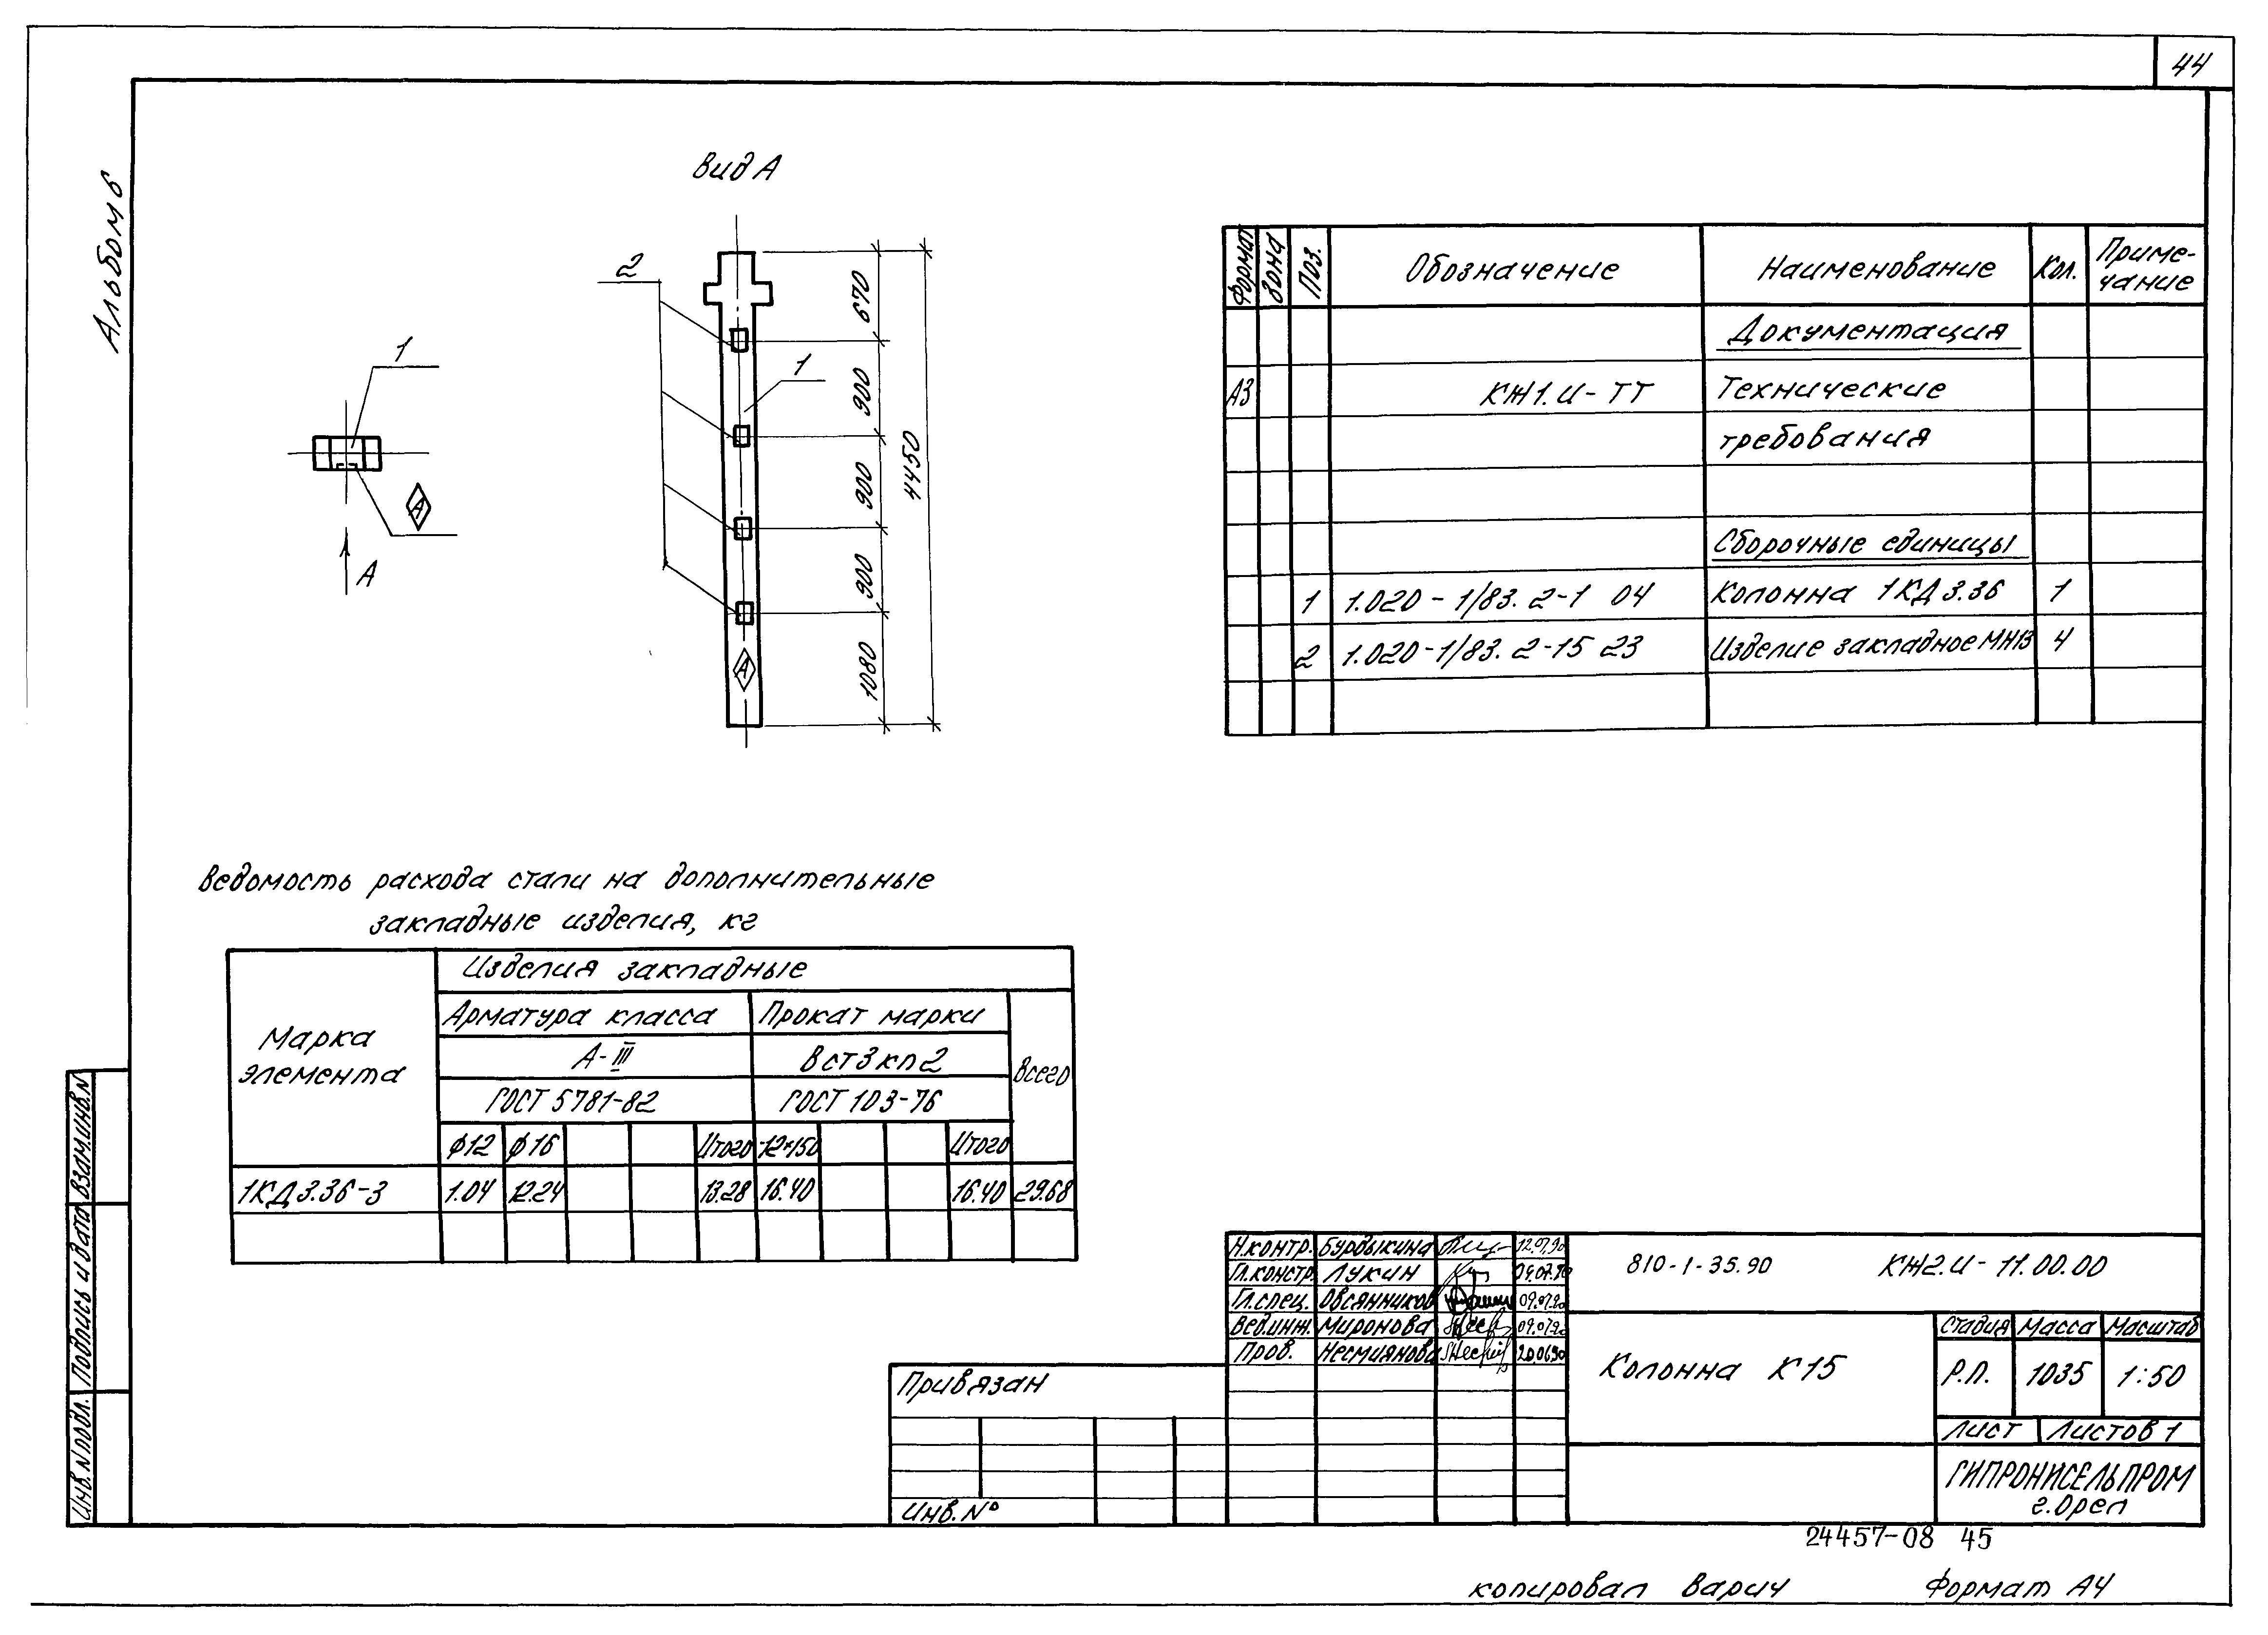 44
Альбом 6
Вид А
2
1
1
А
А
А
670
900
900
900
1080
4450
Формат Зона Поз. Обозначение Наименование Кол. Приме-
чание
Документация
А3 КЖ1.И-ТТ Технические
требования
Сборочные единицы
1 1.020-1/83. 2-1 04 Колонна 1КД 3.36 1
2 1.020-1/83. 2-15 23 Изделие закладное МН13 4
Ведомость расхода стали на дополнительные
закладные изделия, кг
Марка
элемента
Изделия закладные
Арматура класса Прокат марки Всего
А-III Вст3кп2
ГОСТ 5781-82 ГОСТ 103-76
ф12 ф16 Итого -12×150 Итого
1КД 3.36-3 1.04 12.24 13.28 16.40 16.40 29.68
Взам.инв.N
Подпись и дата
Инв.N подл.
Н.контр. Бурдыкина 12.07.90
Гл.констр. Лукин 09.07.90
Гл.спец. Овсянников 09.07.90
Вед.инж. Миронова 09.07.90
Пров. Несмиянова 20.06.90
810-1-35.90 КЖ2.И-11.00.00
Колонна К15
Стадия Масса Масштаб
Р.П. 1035 1:50
Лист Листов 1
ГИПРОНИСЕЛЬПРОМ
г.Орел
Привязан
Инв.N°
24457-08 45
копировал Варич Формат А4